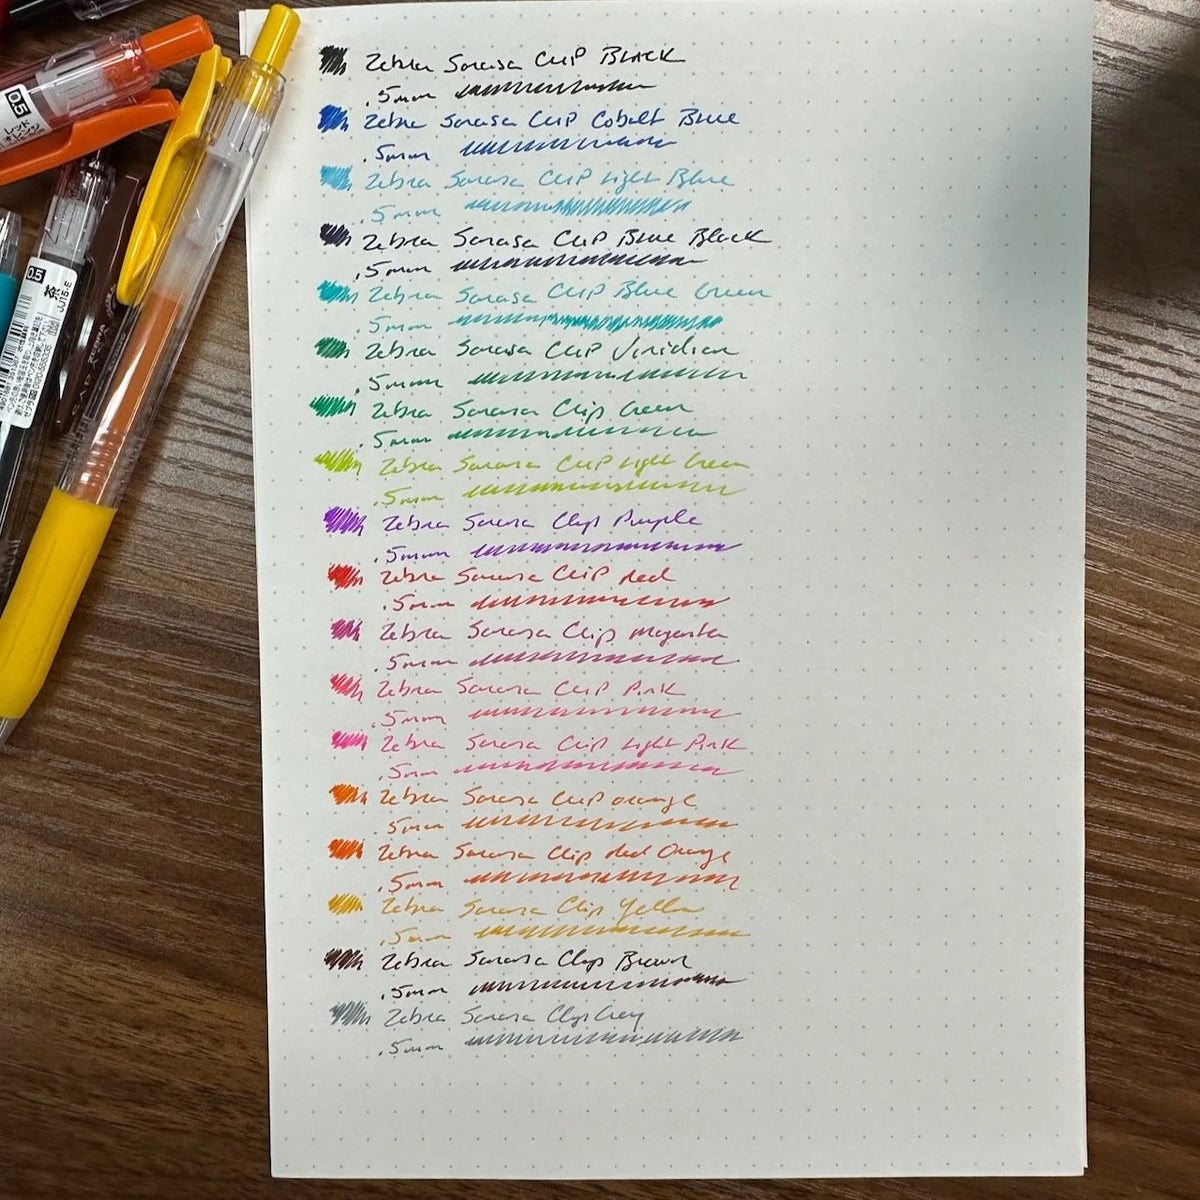 Zebra Sarasa Clip BLACK
.5mm
Zebra Sarasa Clip Cobalt Blue
.5mm
Zebra Sarasa Clip Light Blue
.5mm
Zebra Sarasa Clip Blue Black
.5mm
Zebra Sarasa Clip Blue Green
.5mm
Zebra Sarasa Clip Viridian
.5mm
Zebra Sarasa Clip Green
.5mm
Zebra Sarasa Clip Light Green
.5mm
Zebra Sarasa Clip Purple
.5mm
Zebra Sarasa Clip Red
.5mm
Zebra Sarasa Clip Magenta
.5mm
Zebra Sarasa Clip Pink
.5mm
Zebra Sarasa Clip Light Pink
.5mm
Zebra Sarasa Clip orange
.5mm
Zebra Sarasa Clip Red Orange
.5mm
Zebra Sarasa Clip Yellow
.5mm
Zebra Sarasa Clip Brown
.5mm
Zebra Sarasa Clip Grey
.5mm
0.5
レッド
オレンジ
0.5
茶
JJ15-E